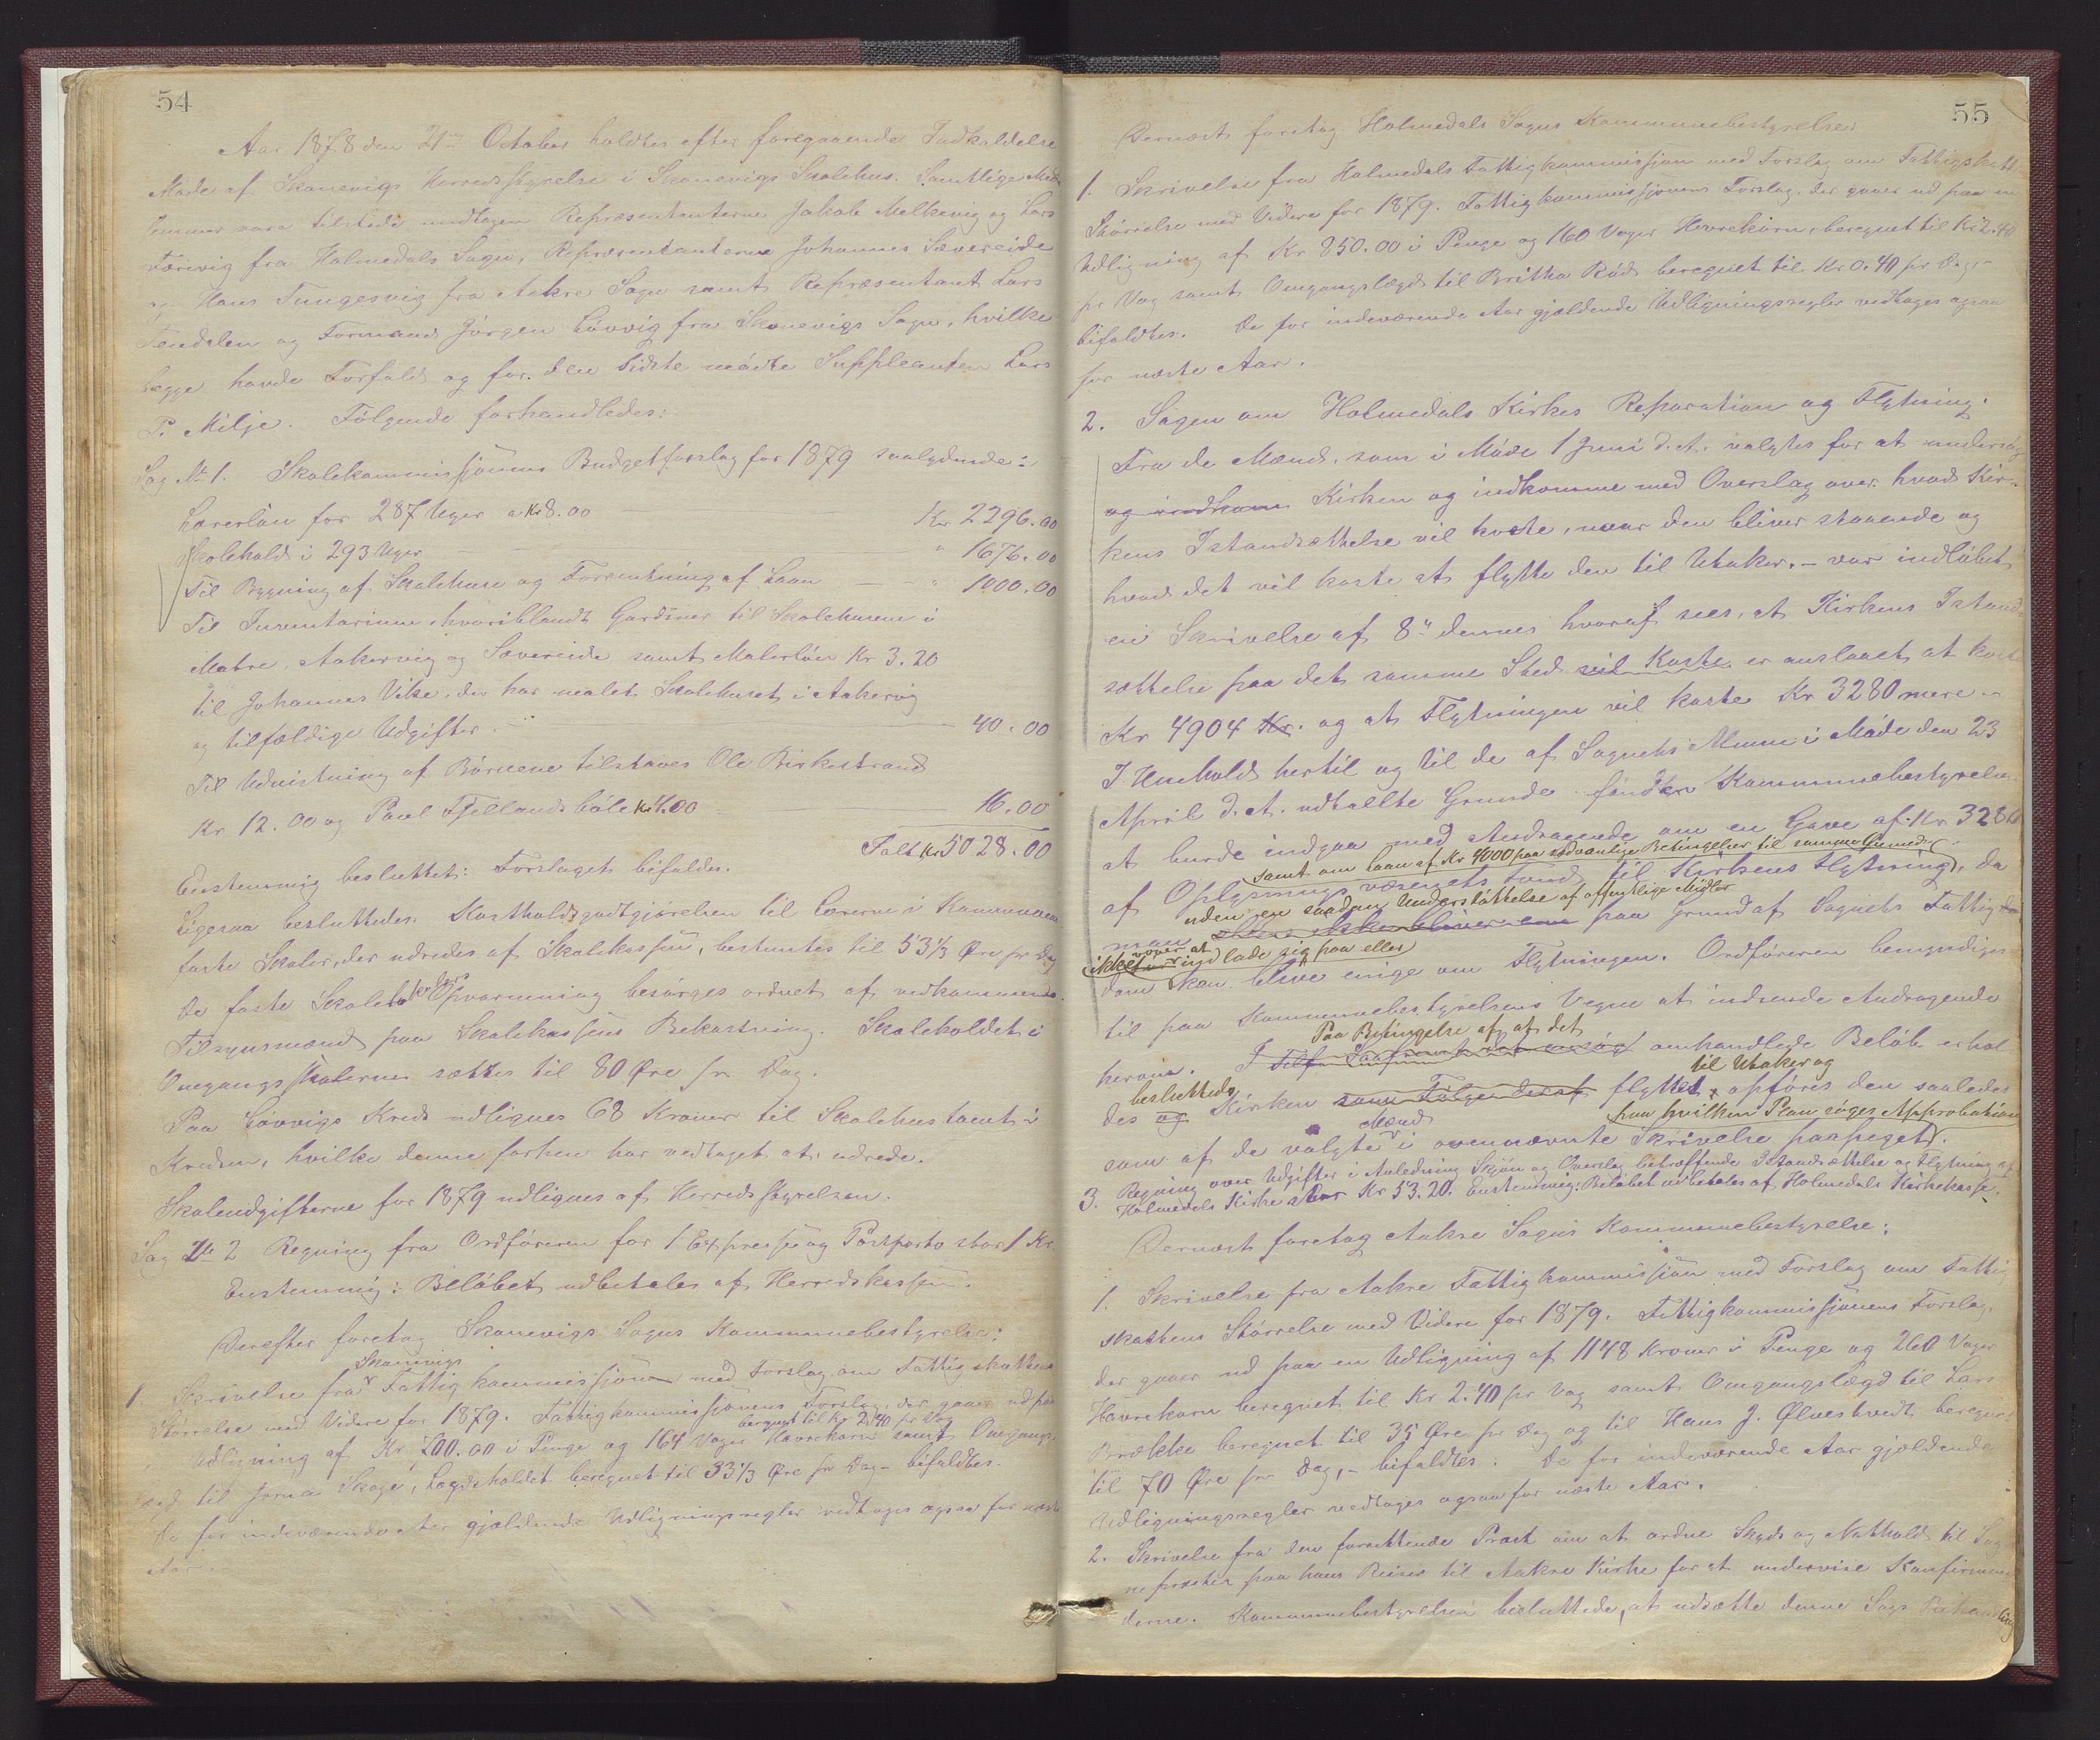 54
Aar 1878 den 21de October holdtes efter foregaaende Indkaldelse
Møde af Skonevigs Herredsstyrelse i Skonevigs Skolehus. Samtlige Med-
lemmer vare tilstede undtagen Repræsentanterne Jakob Milkevig og Lars
fra Holmedals Sogn, Repræsentanterne Johannes Sævereide
og Hans Tungesvig fra Aakre Sogn samt Repræsentant Lars
Tendalen og Formand Jørgen Løvvig fra Skonevigs Sogn, hvilke
begge havde Forfald og for den sidste mødte Suppleanten Lars
P. Milje. Følgende forhandledes:
Sag No 1. Skolekommissjonens Budgetforslag for 1879 saalydende:
Lærerløn for 287 Uger a Kr 8.00 Kr 2296.00
Skolehold i 293 Uger " 1676.00
Til Bygning af Skolehuse og Forrentning af Laan " 1000.00
Til Inventarium hvoriblandt Gardiner til Skolehusene i
Matre, Aakervig og Sævereide samt Malerløn Kr 3.20
til Johannes Vike, der har malet Skolehuset i Aakervig
og tilfældige Udgifter 40.00
Til Udnistning af Børnene tilstaaes Ole Birkestrand
Kr 12.00 og Paul Fjellandsbøle Kr 4.00 16.00
Ialt Kr 5028.00
Enstemmig besluttet: Forslaget bifaldes.
Ligesaa besluttedes: Kostholdsgodtgjørelsen til Lærerne i Kommunens
faste Skoler, der udredes af Skolekassen, bestemtes til 53 1/3 Øre pr Dag
De faste Skolelokalers Opvarmning besørges ordnet af vedkommende
Tilsynsmænd paa Skolekassens Bekostning. Skoleholdet i
Omgangsskolerne sættes til 80 Øre pr Dag.
Paa Løvvigs Kreds udlignes 68 Kroner til Skolehustomt i
Kredsen, hvilke denne forhen har vedtaget at udrede.
Skoleudgifterne for 1879 udlignes af Herredsstyrelsen.
Sag No 2 Regning fra Ordføreren for 1 Expresse og Postporto stor 1 Kr
Enstemmig: Beløbet udbetales af Herredskassen.
Derefter foretog Skonevigs Sogns Kommunebestyrelse:
Skonevigs
1. Skrivelse fra Fattigkommissjon med Forslag om Fattigskattens
Størrelse med Videre for 1879. Fattigkommissjonens Forslag, der gaar ud paa
beregnet til Kr 2.40 pr Vog
Udligning af Kr 700.00 i Penge og 164 Voger Havrekorn samt Omgangs-
lægd til Jorna Skoge, Lægdsholdet beregnet til 33 1/3 Øre pr Dag - bifaldtes.
De for indeværende Aar gjældende Udligningsregler vedtages ogsaa for næste
Aar.
55
Dernæst foretog Holmedals Sogns Kommunebestyrelse:
1. Skrivelse fra Holmedals Fattigkommissjon med Forslag om Fattigskatt.
Størrelse med Videre for 1879. Fattigkommissjonens Forslag, der gaaer ud paa en
Udligning af Kr 850.00 i Penge og 160 Voger Havrekorn, beregnet til Kr 2.40
pr Vog samt Omgangslægd til Britha Rød beregnet til Kr 0.40 pr Dag -
bifaldtes. De for indeværende Aar gjældende Udligningsregler vedtages ogsaa
for næste Aar.
2. Sagen om Holmedals Kirkes Reparation og Flytning.
Fra de Mænd, som i Møde 1 Juni d. A. valgtes for at undersøg
og indkom Kirken og indkomme med Overslag over hvad Kir-
kens Istandsættelse vil koste, naar den bliver staaende og
hvad det vil koste at flytte den til Utaker. - var indløbet
en Skrivelse af 8" dennes hvoraf sees, at Kirkens Istand-
sættelse paa det samme Sted vil Koste er anslaaet at koste
Kr 4904 Kr. og at Flytningen vil koste Kr 3280 mere -
I Henhold hertil og til de af Sognets Mænd i Møde den 23
April d. A. udtallte Grunde fandt Kommunebestyrelsen
at burde indgaa med Andragende om en Gave af Kr 3280
samt om Laan af Kr 4000 paa sædvanlige Betingelser til samme Øiemed
af Oplysningsvæsenets Fond til Kirkens Flytning, da
uden en saadan Understøttelse af offentlige Midler
man ellers ikke bliver paa Grund af Sognets Fattigdom
ikke vover at indlade sig paa eller
dom kan blive enige om Flytningen. Ordføreren bemyndiges
til paa Kommunebestyrelsens Vegne at indsende Andragende
Paa Betingelse af at det
herom. omhandlede Beløb erhol-
besluttedes til Utaker og
des og Kirken som Følge deraf flyttet opføres den saaledes
Mænd paa hvilken Plan søges Approbation
som af de valgte i ovennævnte Skrivelse paapeget.
3. Regning over Udgifter i Anledning Skjøn og Overslag betræffende Istandsættelse og Flytning af
Holmedals Kirke stor Kr 53.20. Enstemmig: Beløbet udbetales af Holmedals Kirkekasse.
Dernæst foretog Aakre Sogns Kommunebestyrelse:
1. Skrivelse fra Aakre Fattigkommissjon med Forslag om Fattig
skattens Størrelse med Videre for 1879. Fattigkommissjonens Forslag,
der gaaer ud paa en Udligning af 1148 Kroner i Penge og 260 Voger
Havrekorn beregnet til Kr 2.40 pr Vog samt Omgangslægd til Lars
Brække beregnet til 35 Øre pr Dag og til Hans J. Ølvestvedt beregnet
til 70 Øre pr Dag, - bifaldtes. De for indeværende Aar gjældende
Udligningsregler vedtages ogsaa for næste Aar.
2. Skrivelse fra den forrettende Præst om at ordne Skyds og Natthold til Sog-
nepræsten paa hans Reiser til Aakre Kirke for at undervise Konfirman-
derne. Kommunebestyrelsen besluttede, at udsætte denne Sags Behandling